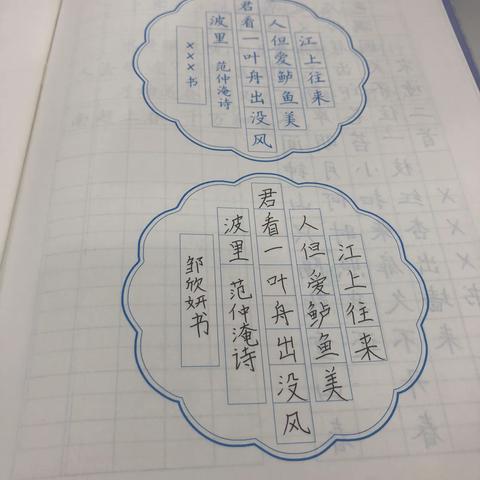 江上往来
人但爱鲈鱼美
君看一叶舟出没风
波里 范仲淹诗
×××书
江上往来
人但爱鲈鱼美
君看一叶舟出没风
波里 范仲淹诗
邹欣妍书